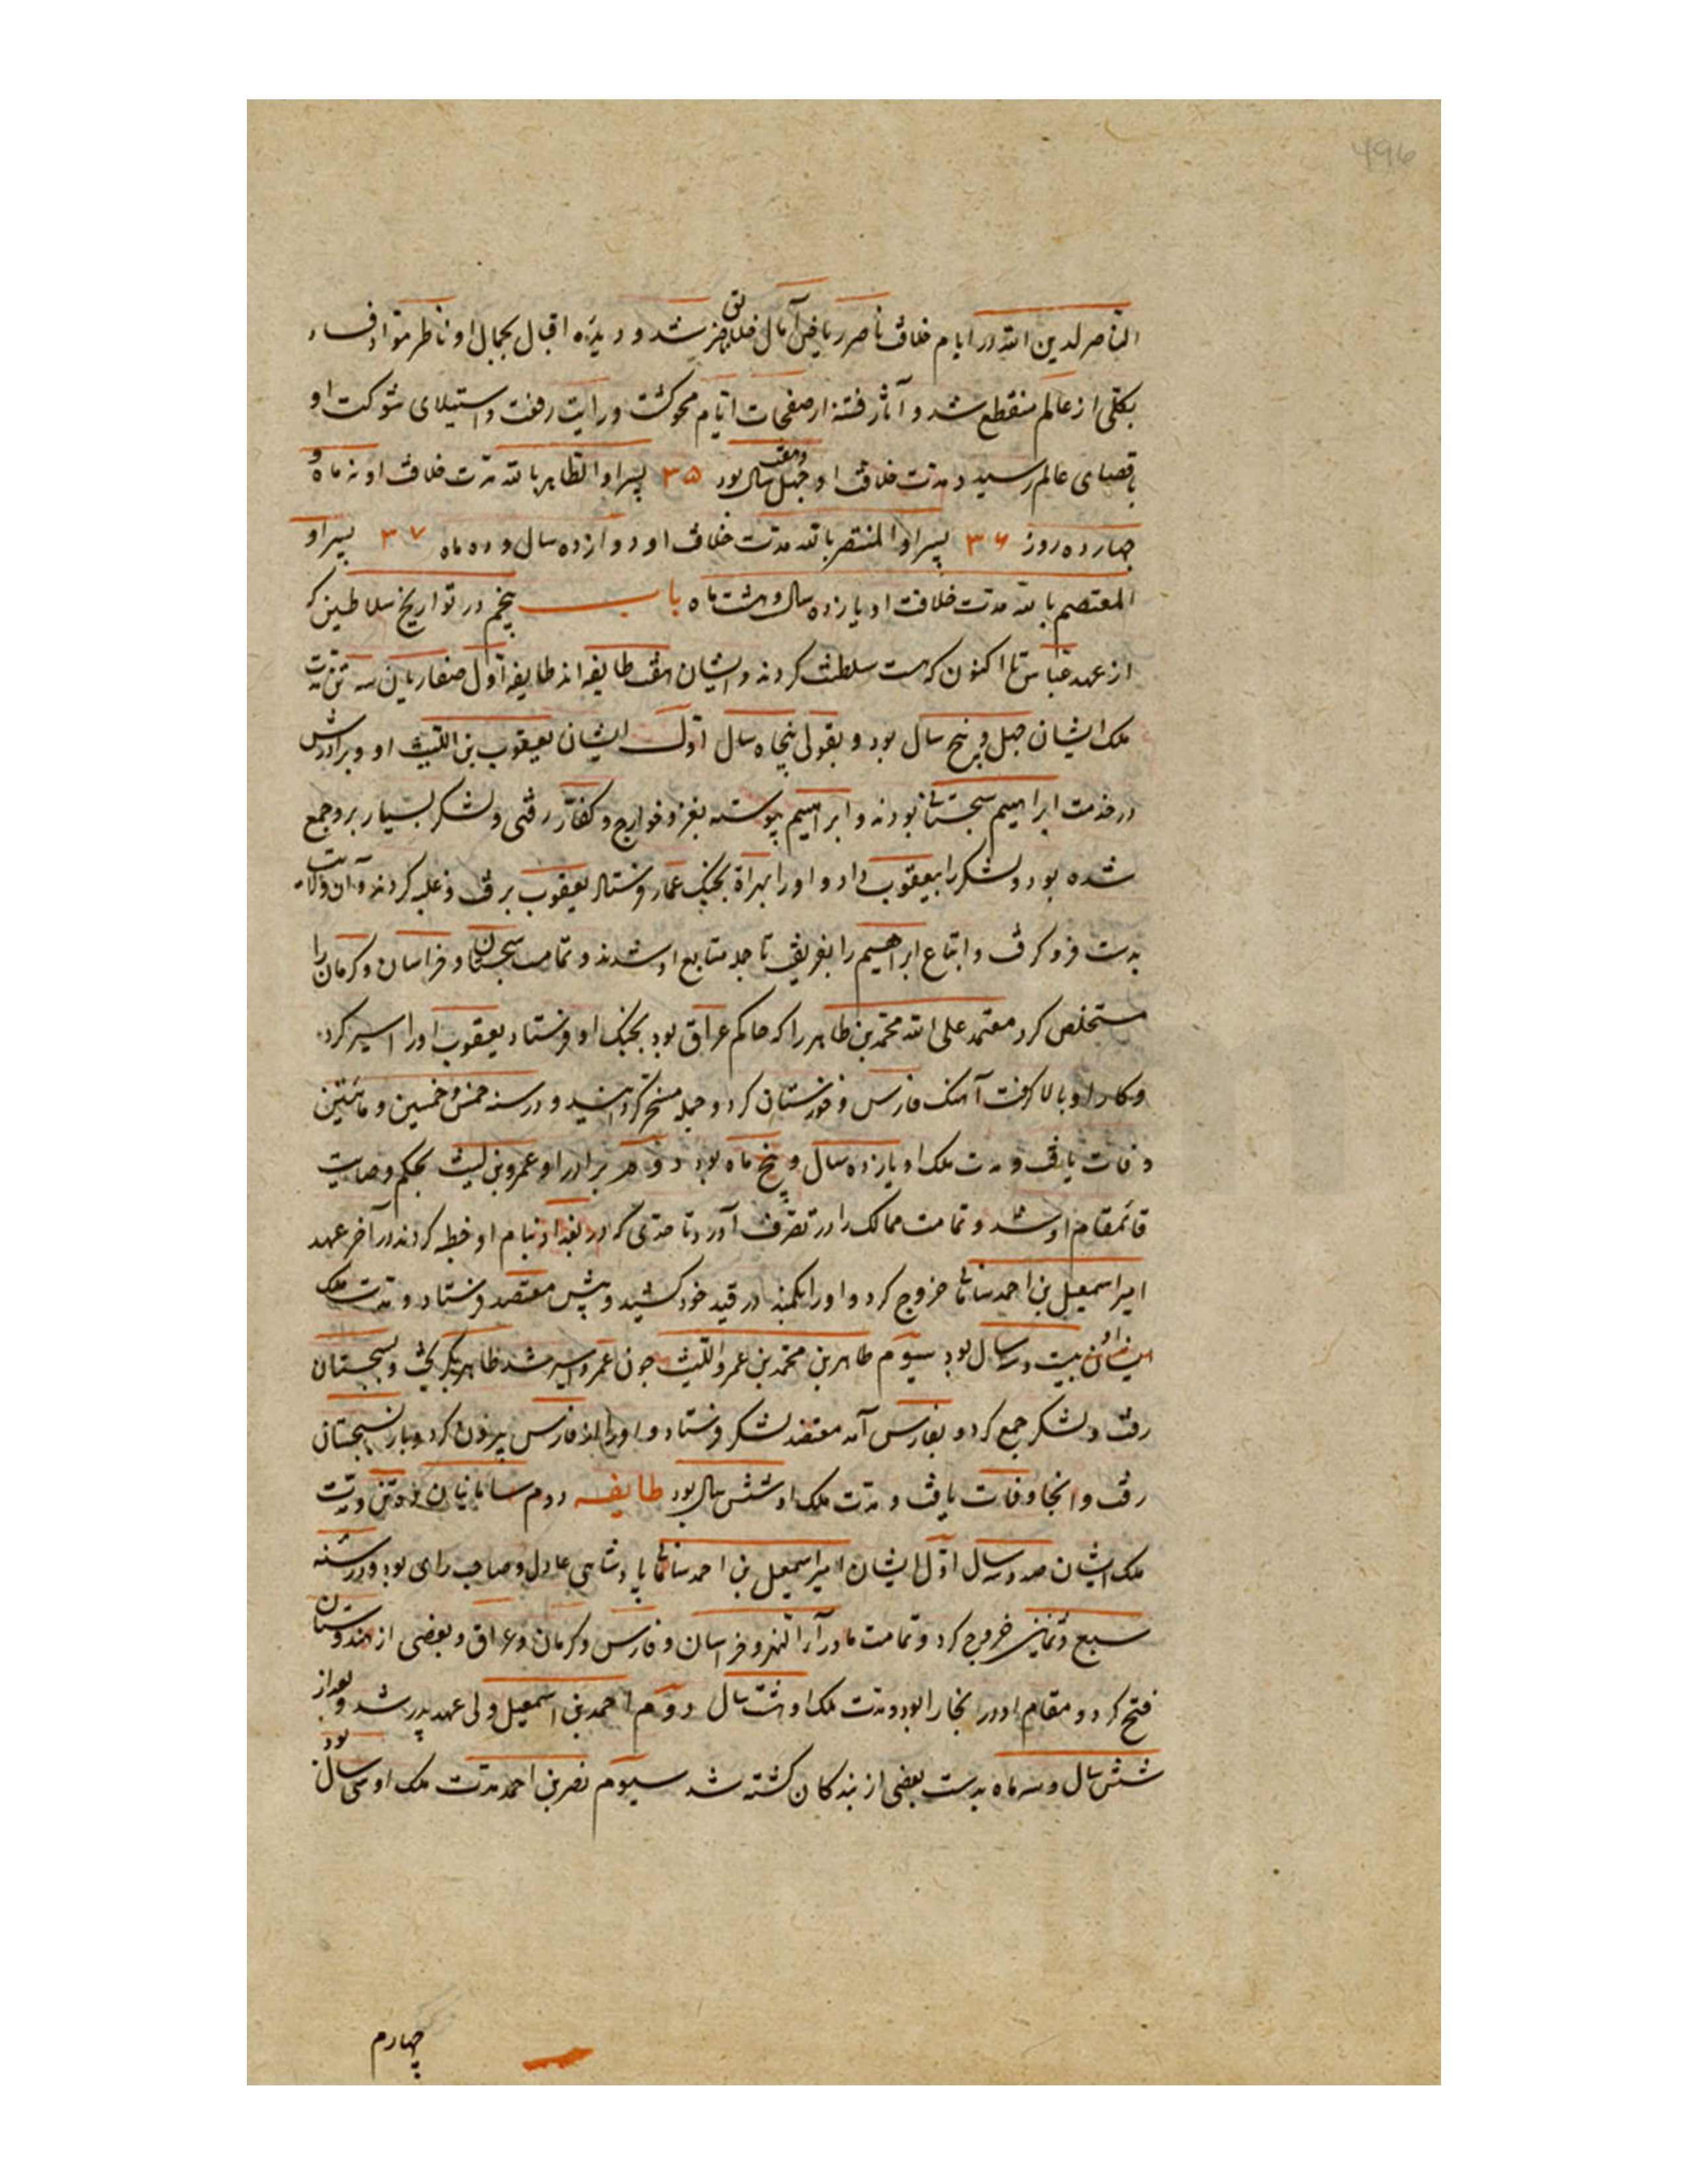 ۴۹۶
الناصر لدین الله در ایام خلافت ناصر ریاض آمال خلایق خضر شد و دیده اقبال بجمال او ناظر مواد فساد
بکلی از عالم منقطع شد و آثار فتنه از صفحات ایام محو کشت و رایت رفعت و استیلای شوکت او
باقصای عالم رسید و مدت خلافت او چهل و هفت سال بود ۳۵ پسر او الظاهر بالله مدت خلافت او نه ماه و
چهارده روز ۳۶ پسر او المنتصر بالله مدت خلافت او دوازده سال و ده ماه ۳۷ پسر او
المعتصم بالله مدت خلافت او یازده سال و هشت ماه باب پنجم در تواریخ سلاطین که
از عهد عباس تا اکنون که هست سلطنت کردند و ایشان هفت طایفه اند طایفه اول صفاریان سه تن مدت
ملک ایشان چهل و پنج سال بود و بقولی پنجاه سال اول ایشان یعقوب بن اللیث او و برادرش
در خدمت ابراهیم سجستانی بودند و ابراهیم پیوسته بغزو خوارج و کفار رفتی و لشکر بسیار برو جمع
شده بود و لشکر را بیعقوب داد و او را بهراة بجنک عمار فرستاد یعقوب برفت و غلبه کردند و آن ولایت
بدست فرو کرفت و اتباع ابراهیم را بفریفت تا جمله متابع او شدند و تمامت سجستان و خراسان و کرمان را
مستخلص کرد معتمد علی الله محمد بن طاهر را که حاکم عراق بود بجنک او فرستاد یعقوب او را اسیر کرد
و کار او بالا کرفت آهنک فارس و خوزستان کرد و جمله مسخر کردانید و در سنه خمس و خمسین و مائتین
وفات یافت و مدت ملک او یازده سال و پنج ماه بود دوم برادر او عمرو بن لیث بحکم وصایت
قائمقام او شد و تمامت ممالک را در تصرف آورد تا حدی که در بغداد بنام او خطبه کردند در آخر عهد
امیر اسمعیل بن احمد سامانی خروج کرد و او را بکمند در قید خود کشید و پیش معتضد فرستاد و مدت ملک
بیست و سه سال بود سیوم طاهر بن محمد بن عمرو اللیث چون عمرو اسیر شد طاهر بکریخت و بسجستان
رفت و لشکر جمع کرد و بفارس آمد معتضد لشکر فرستاد و او را از فارس بیرون کرد و باز بسجستان
رفت و انجا وفات یافت و مدت ملک او شش سال بود طایفه دوم سامانیان نه تن و مدت
ملک ایشان صد و سه سال اول ایشان امیر اسمعیل بن احمد سامانی پادشاهی عادل و صاحب رای بود و در سنه
سبع و ثمانین خروج کرد و تمامت ماورآ النهر و خراسان و فارس و کرمان و عراق و بعضی از هندوستان
فتح کرد و مقام او در بخارا بود و مدت ملک او هشت سال دوم احمد بن اسمعیل ولی عهد پدر شد و بعد از
شش سال و سه ماه بدست بعضی از بندکان کشته شد سیوم نصر بن احمد مدت ملک او سی سال بود
چهارم